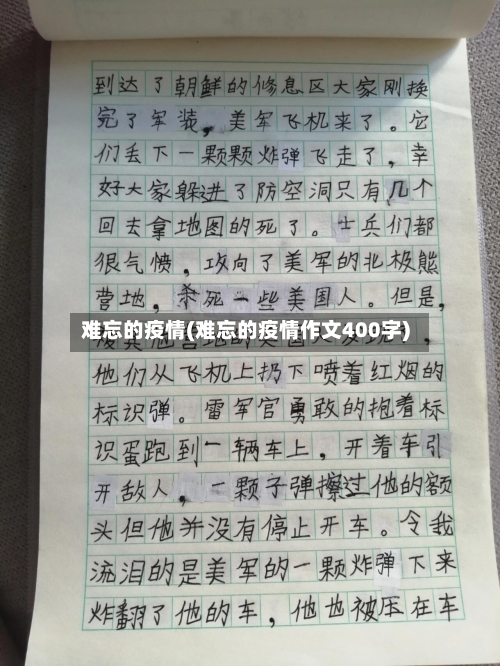 到达了朝鲜的修息区大家刚换
完了军装，美军飞机来了。它
们丢下一颗颗炸弹飞走了，幸
好大家躲进了防空洞只有几个
回去拿地图的死了。士兵们都
很气愤，攻向了美军的北极熊
营地，杀死一些美国人。但是，
难忘的疫情(难忘的疫情作文400字)
他们从飞机上扔下喷着红烟的
标识弹。雷军官勇敢的抱着标
识蛋跑到一辆车上，开着车引
开敌人，一颗子弹擦过他的额
头但他并没有停止开车。令我
流泪的是美军的一颗炸弹下来
炸翻了他的车，他也被压在车